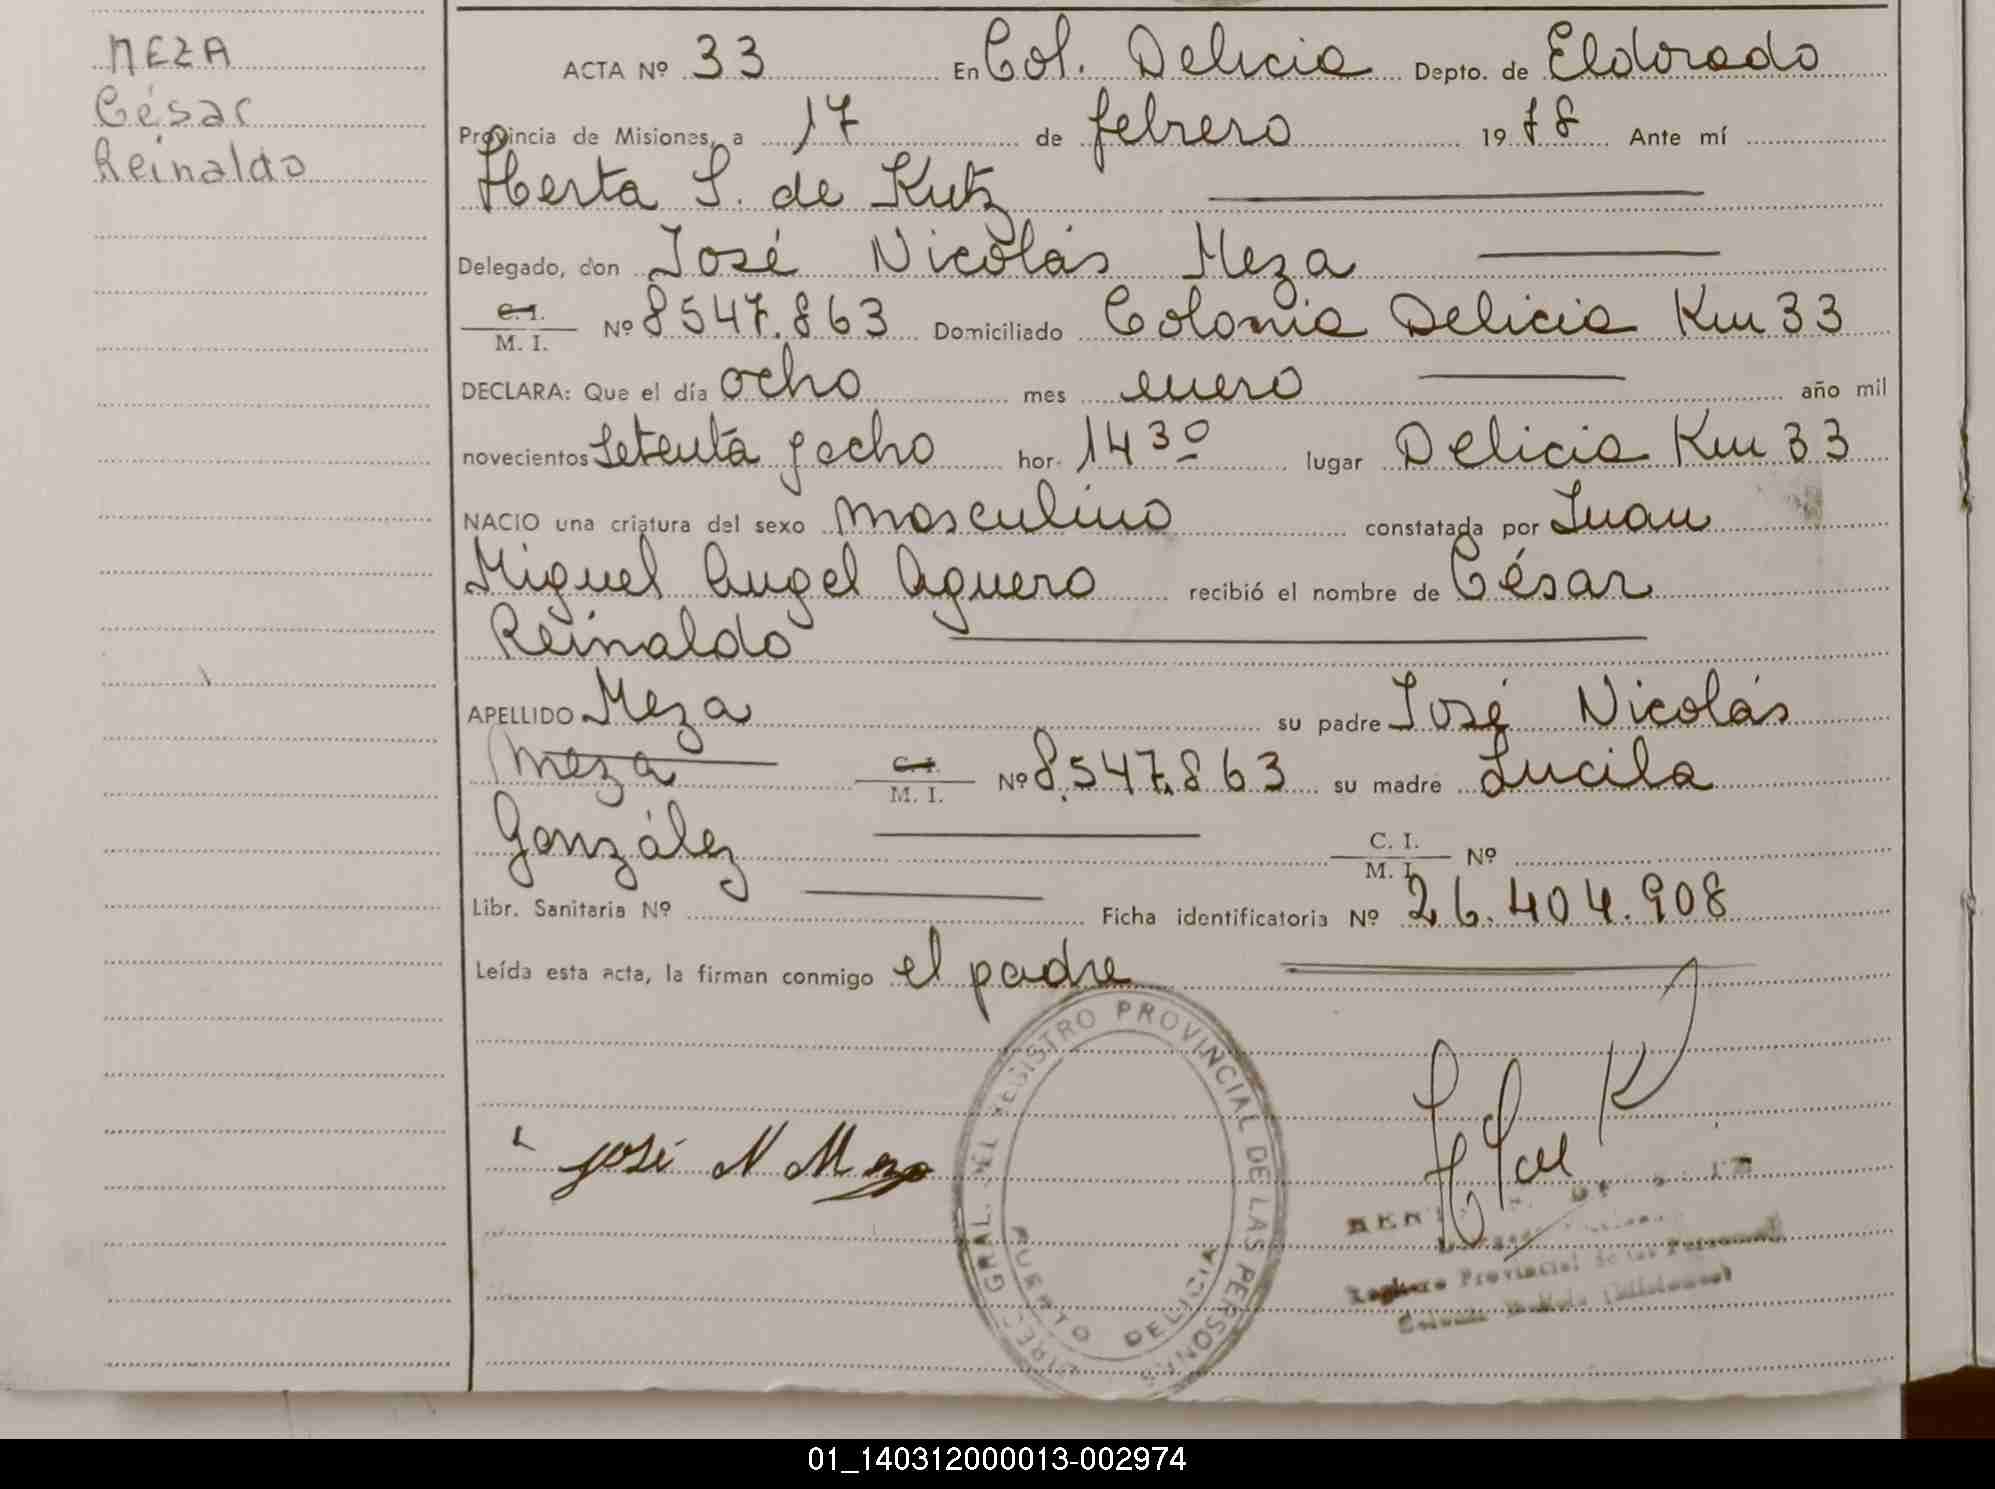 MEZA
César
Reinaldo
ACTA Nº 33 En Col. Delicia Depto. de Eldorado
Provincia de Misiones, a 17 de febrero 1978 Ante mí
Herta S. de Kutz
Delegado, don José Nicolás Meza
C. I. / M. I. Nº 8547.863 Domiciliado Colonia Delicia Km 33
DECLARA: Que el día ocho mes enero año mil
novecientos setenta y ocho hor. 14 30 lugar Delicia Km 33
NACIO una criatura del sexo masculino constatada por Juan
Miguel Angel Aguero recibió el nombre de César
Reinaldo
APELLIDO Meza su padre José Nicolás
Meza C. I. / M. I. Nº 8.547.863 su madre Lucila
González C. I. / M. I. Nº
Libr. Sanitaria Nº Ficha identificatoria Nº 26.404.908
Leída esta acta, la firman conmigo el padre
José N Meza
DIREC. GRAL. DEL REGISTRO PROVINCIAL DE LAS PERSONAS
PUERTO DELICIA
Registro Provincial de las Personas
01_140312000013-002974